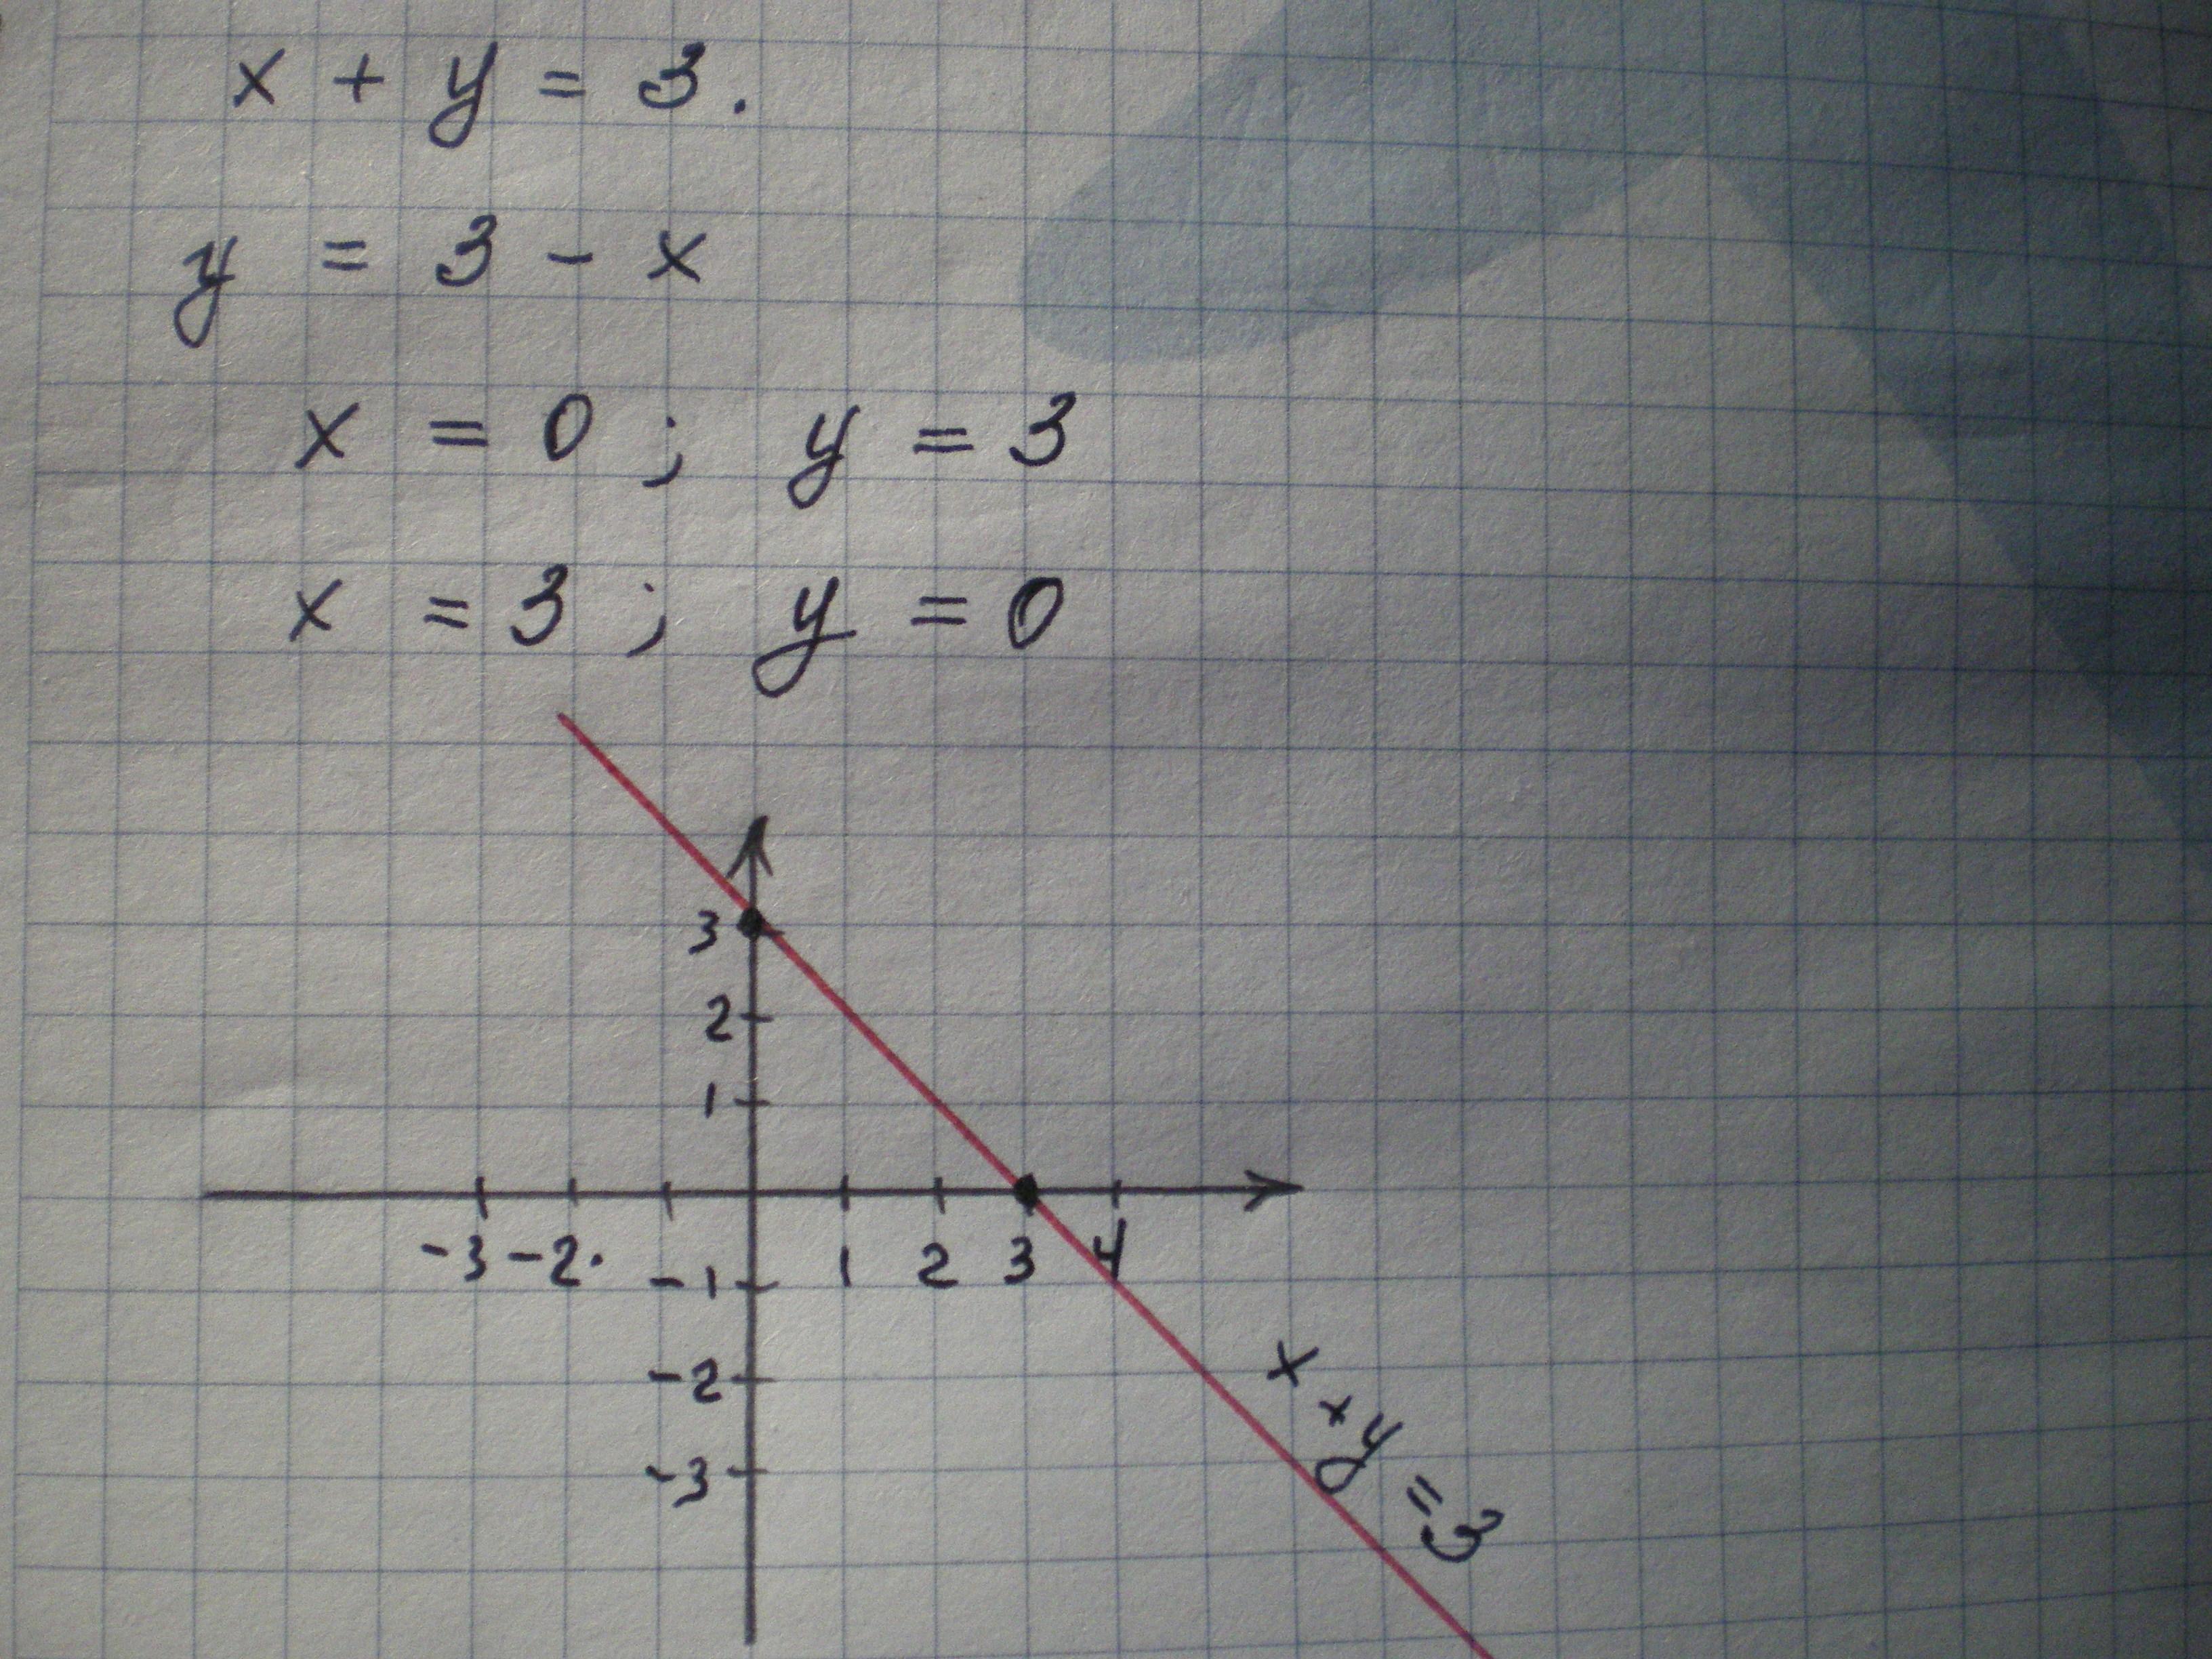 x + y = 3.
y = 3 - x
x = 0 ; y = 3
x = 3 ; y = 0
3
2
1
-3 -2. 1 2 3 4
-1
-2
-3
x + y = 3